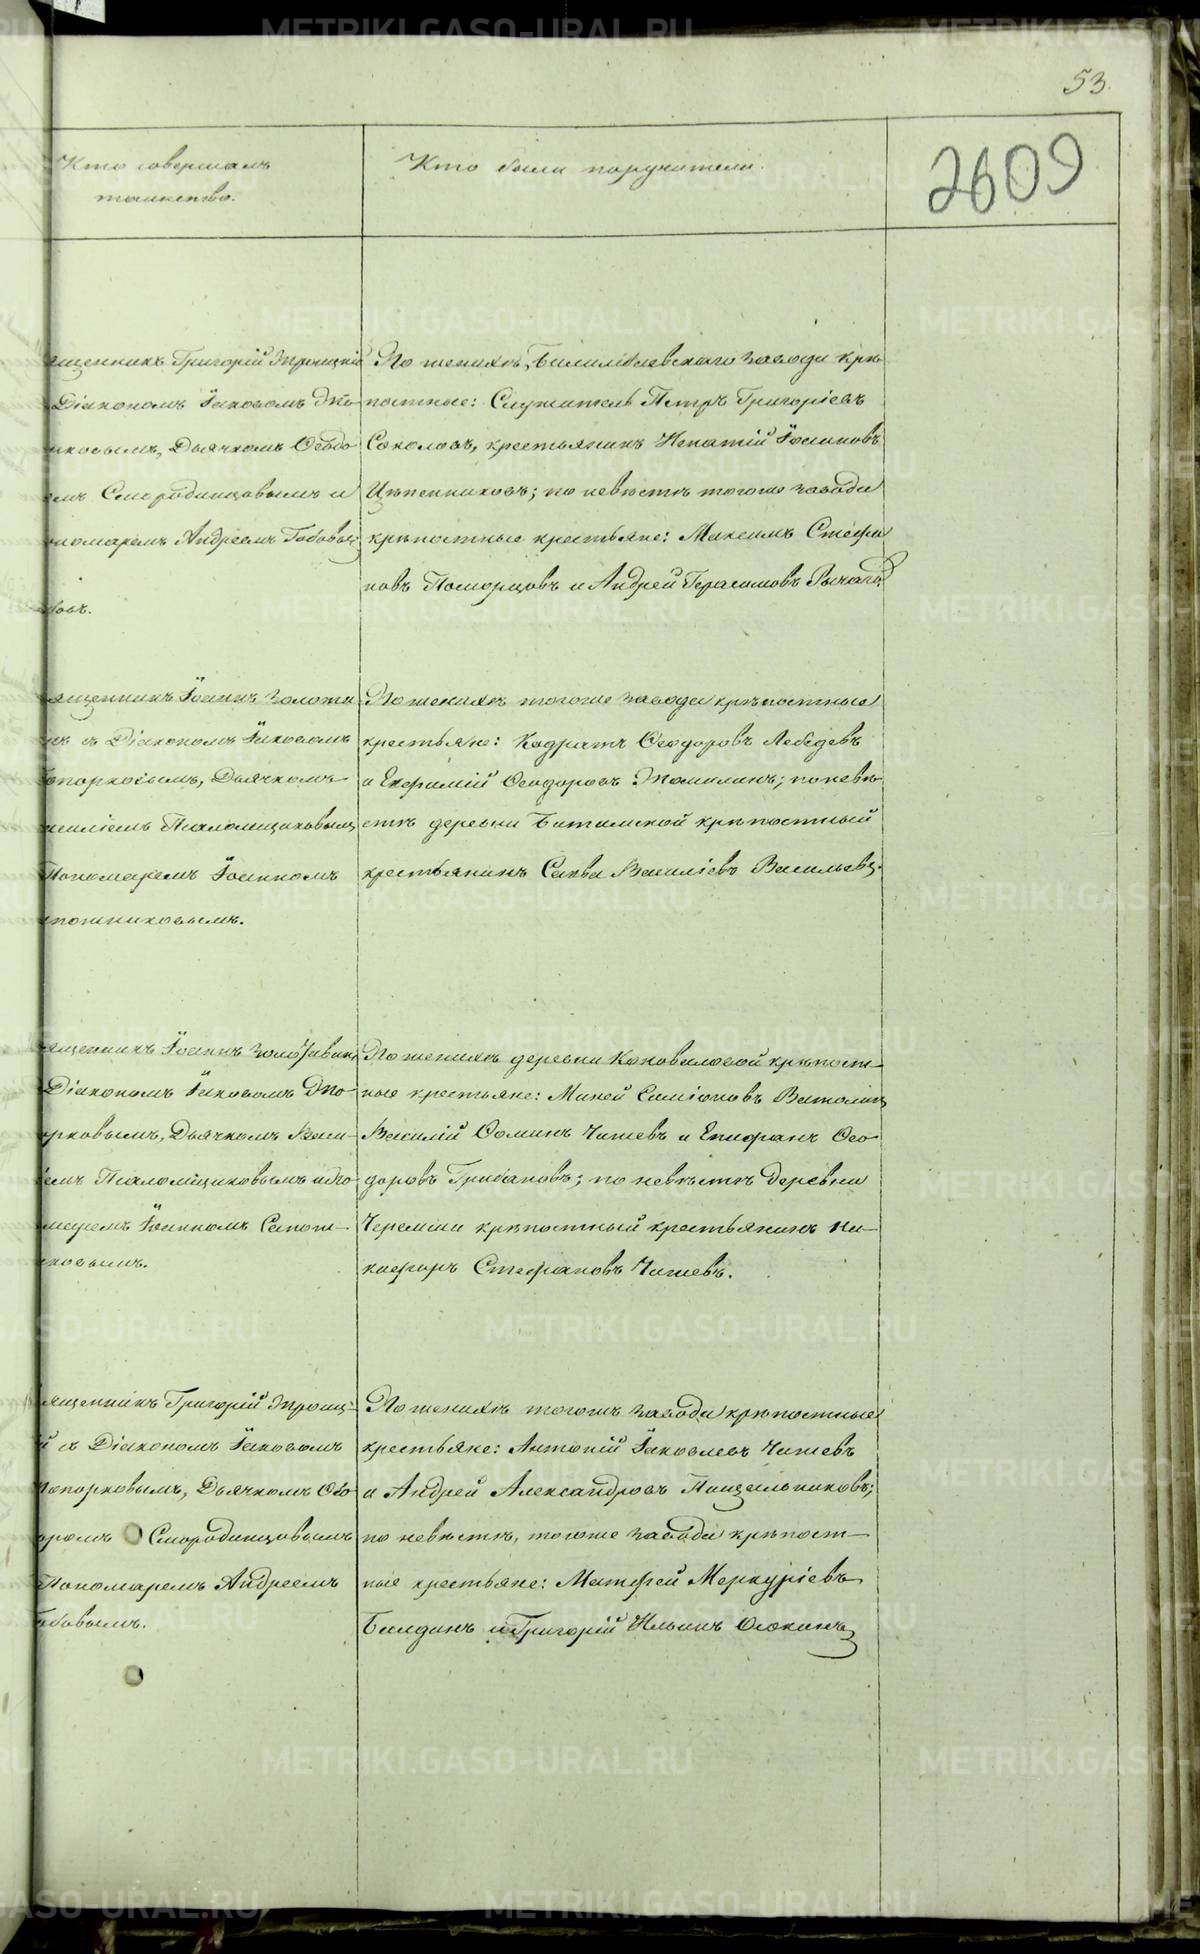 53.
2609
Кто совершалъ
таинство.
Кто были поручители.
ященникъ Григорій Троицкій
Діакономъ Іаковомъ Топо-
рковымъ, Дьячкомъ Ѳеодо-
омъ Смородинцовымъ и
ономаремъ Андреемъ
По женихѣ, Билимбаевскаго завода крѣ-
постные: Служитель Петръ Григоріевъ
Соколовъ, крестьянинъ Игнатій Іоанновъ
Цѣпенниковъ; по невѣстѣ тогоже завода
крѣпостные крестьяне: Максимъ Стефа
новъ Поморцовъ и Андрей Герасимовъ
ященникъ Іоаннъ Золота
въ съ Діакономъ Іаковомъ
Топорковымъ, Дьячкомъ
асиліемъ Псаломщиковымъ
Пономаремъ Іоанномъ
апожниковымъ.
По женихѣ тогоже завода крѣпостные
крестьяне: Кодратъ Ѳеодоровъ Лебедевъ
и Евфимій Ѳеодоровъ Томилинъ; по невѣ-
стѣ деревни Битимской крѣпостный
крестьянинъ Савва Василіевъ Васильевъ.
ященникъ Іоаннъ Золотавинъ
Діакономъ Іаковомъ Топо-
рковымъ, Дьячкомъ Васи-
емъ Псаломщиковымъ и По
маремъ Іоанномъ Сапож-
ковымъ.
По женихѣ деревни Коноваловой крѣпост-
ные крестьяне: Миней Симіоновъ Ватолинъ
Василій Ѳоминъ Чижевъ и Епифанъ Ѳео
доровъ Грибановъ; по невѣстѣ деревни
Черемши крѣпостный крестьянинъ Ни-
кифоръ Стефановъ Чижевъ.
ященникъ Григорій Троиц-
й съ Діакономъ Іаковомъ
Топорковымъ, Дьячкомъ Ѳео-
оромъ Смородинцовымъ
Пономаремъ Андреемъ
По женихѣ тогожъ завода крѣпостные
крестьяне: Антоній Іаковлевъ Чижевъ
и Андрей Александровъ Пищальниковъ;
по невѣстѣ, тогоже завода крѣпост-
ные крестьяне: Матфей Меркуріевъ
Балдинъ и Григорій Ильинъ
METRIKI.GASO-URAL.RU